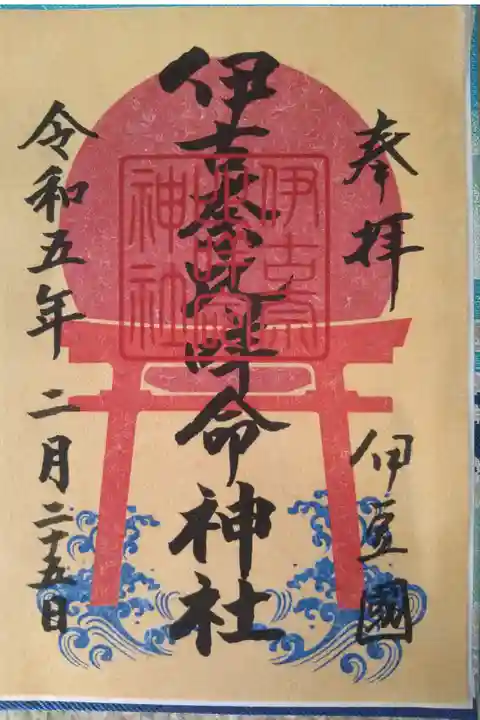 奉拝
伊豆國
伊古奈比咩命神社
伊古奈
比咩命
神社
令和五年 二月二十五日